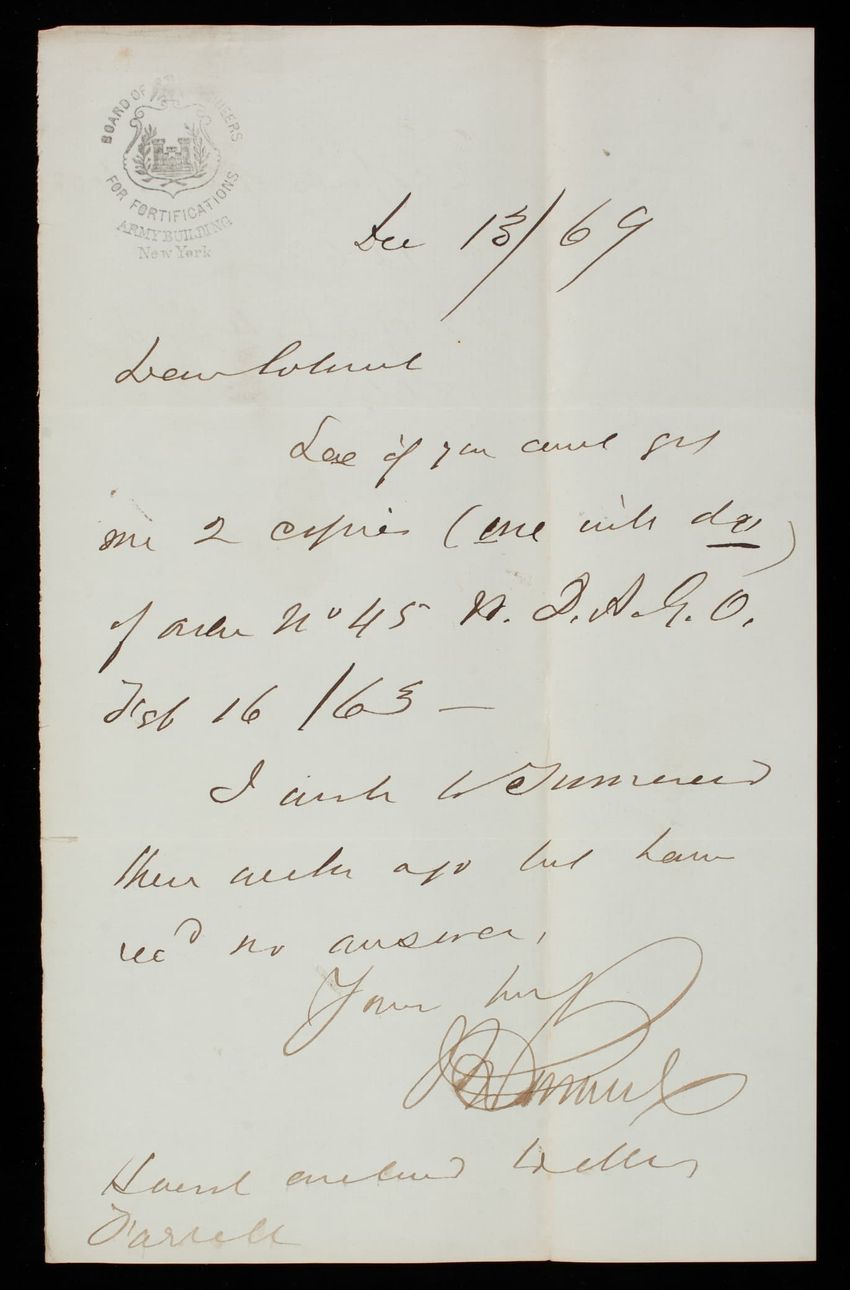 BOARD OF ENGINEERS
FOR FORTIFICATIONS
ARMY BUILDING
New York
Dec 13/69
Dear Colonel
See if you cant get
me 2 copies (one will do)
of order No 45 A.G.O.
Feb 16/63—
I wrote to
three weeks ago but have
recd no answer.
Yours truly
Farrell